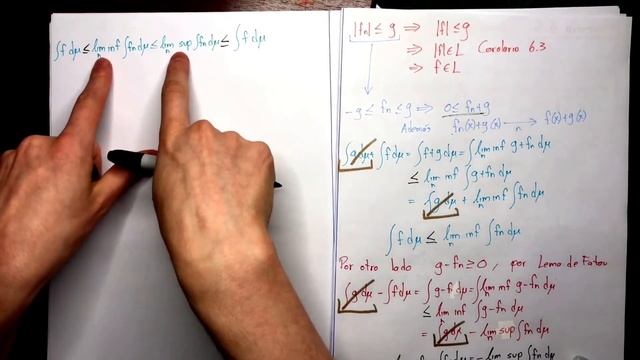 ∫f dμ ≤ lim inf_n ∫fn dμ ≤ lim sup_n ∫fn dμ ≤ ∫f dμ
|fn| ≤ g ⇒ |f| ≤ g
⇒ |f| ∈ L Corolario 6.3
⇒ f ∈ L
-g ≤ fn ≤ g ⇒ 0 ≤ fn+g
Además fn(x)+g(x) ⟶_n f(x)+g(x)
∫g dμ + ∫f dμ = ∫f+g dμ = ∫lim inf_n g+fn dμ
≤ lim inf_n ∫g+fn dμ
= ∫g dμ + lim inf_n ∫fn dμ
∫f dμ ≤ lim inf_n ∫fn dμ
Por otro lado g-fn ≥ 0, por Lema de Fatou
∫g dμ - ∫f dμ = ∫g-f dμ = ∫lim inf_n g-fn dμ
≤ lim inf_n ∫g-fn dμ
= ∫g dμ - lim sup_n ∫fn dμ